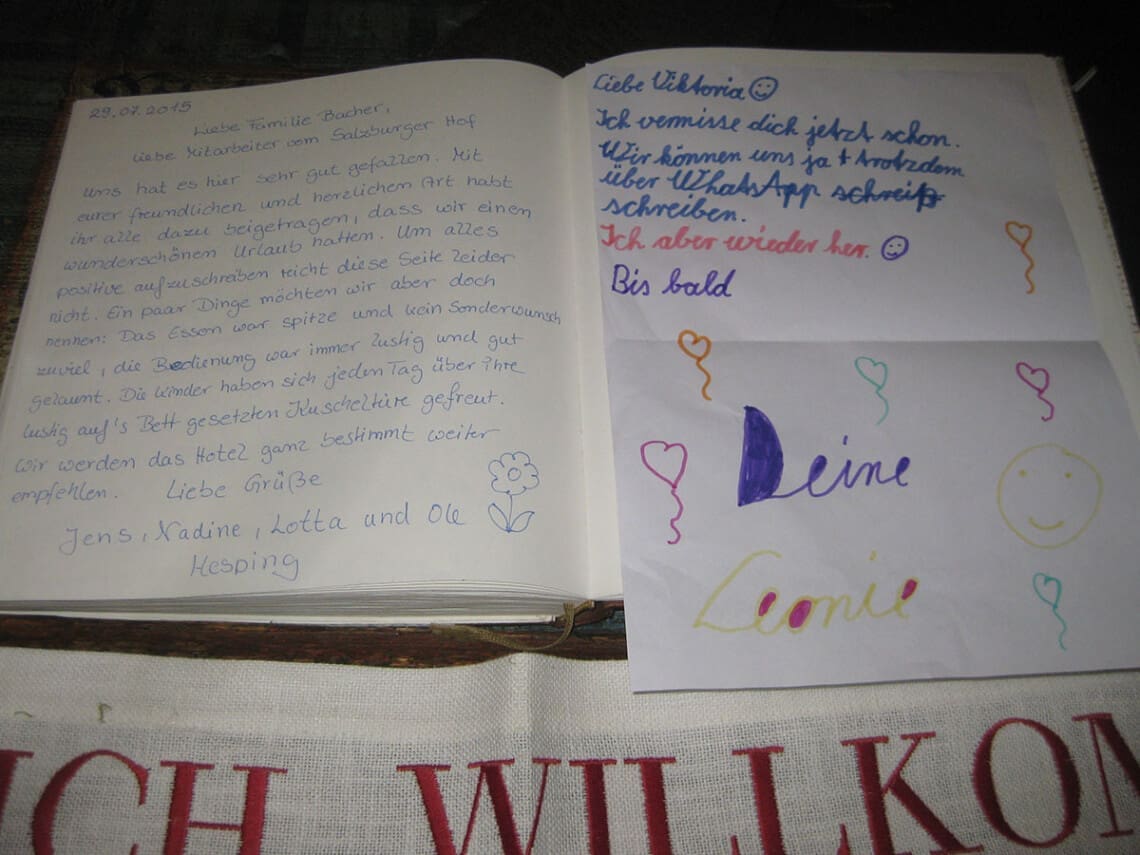 29.07.2015
Liebe Familie Bacher,
Liebe Mitarbeiter vom Salzburger Hof
uns hat es hier sehr gut gefallen. Mit
eurer freundlichen und herzlichen Art habt
ihr alle dazu beigetragen, dass wir einen
wunderschönen Urlaub hatten. Um alles
positive aufzuschreiben reicht diese Seite leider
nicht. Ein paar Dinge möchten wir aber doch
nennen: Das Essen war spitze und kein Sonderwunsch
zuviel, die Bedienung war immer lustig und gut
gelaunt. Die Kinder haben sich jeden Tag über ihre
lustig auf's Bett gesetzten Kuscheltiere gefreut.
Wir werden das Hotel ganz bestimmt weiter
empfehlen. Liebe Grüße
Jens, Nadine, Lotta und Ole
Hesping
Liebe Viktoria
Ich vermisse dich jetzt schon.
Wir können uns ja t trotzdem
über WhatsApp schreip
schreiben.
Ich aber wieder her.
Bis bald
Deine
Leonie
ICH WILLKOM